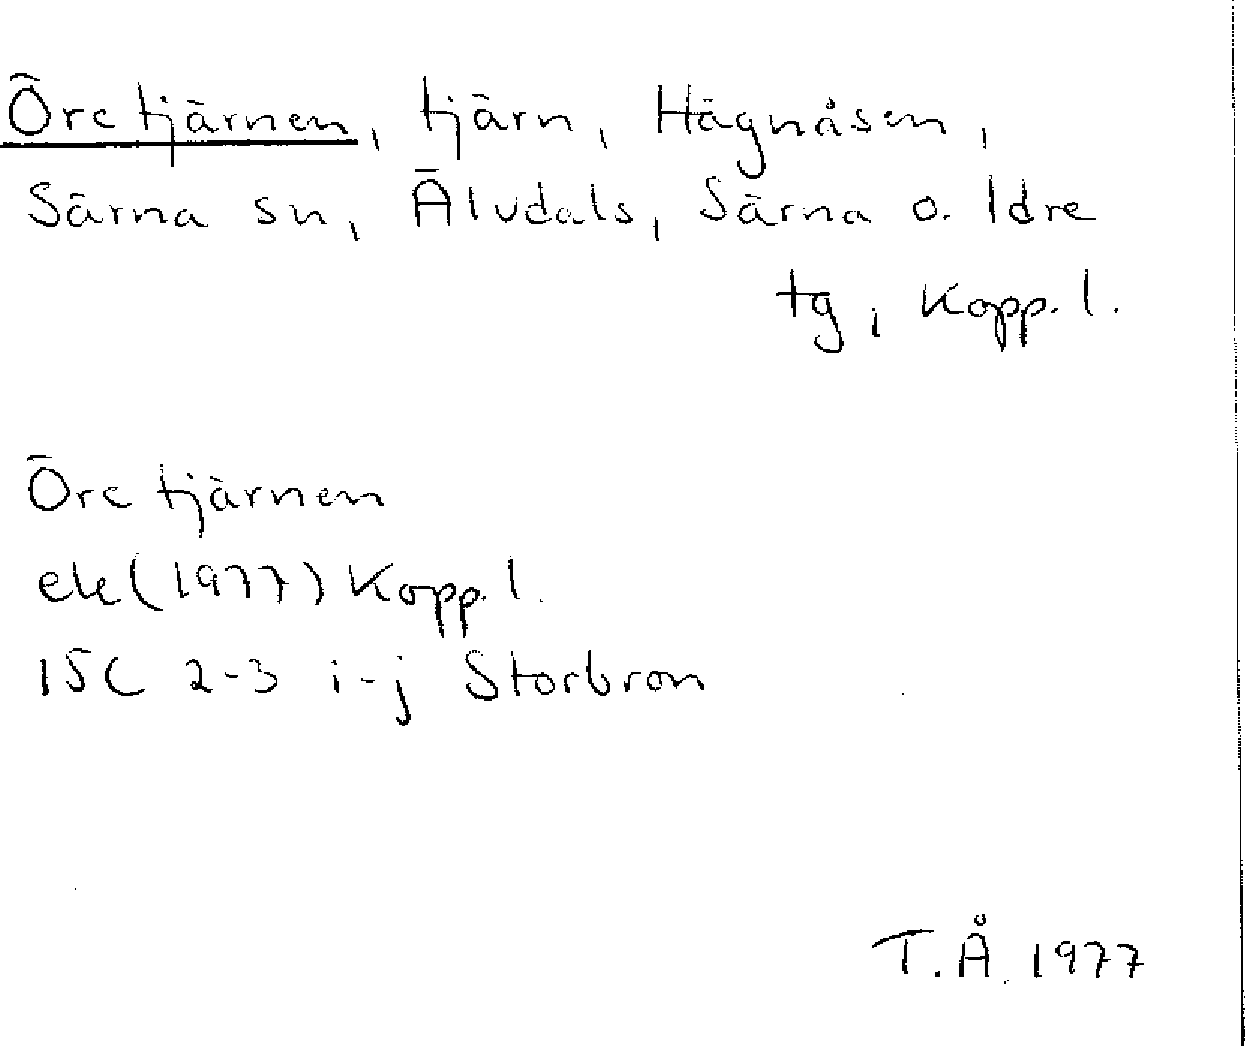 Öretjärnen, tjärn, Hägnåsen,
Särna sn, Älvdals, Särna o. Idre
tg, Kopp. l.
Öretjärnen
ek (1977) Kopp. l.
15C 2-3 i-j Storbron
T.Å. 1977